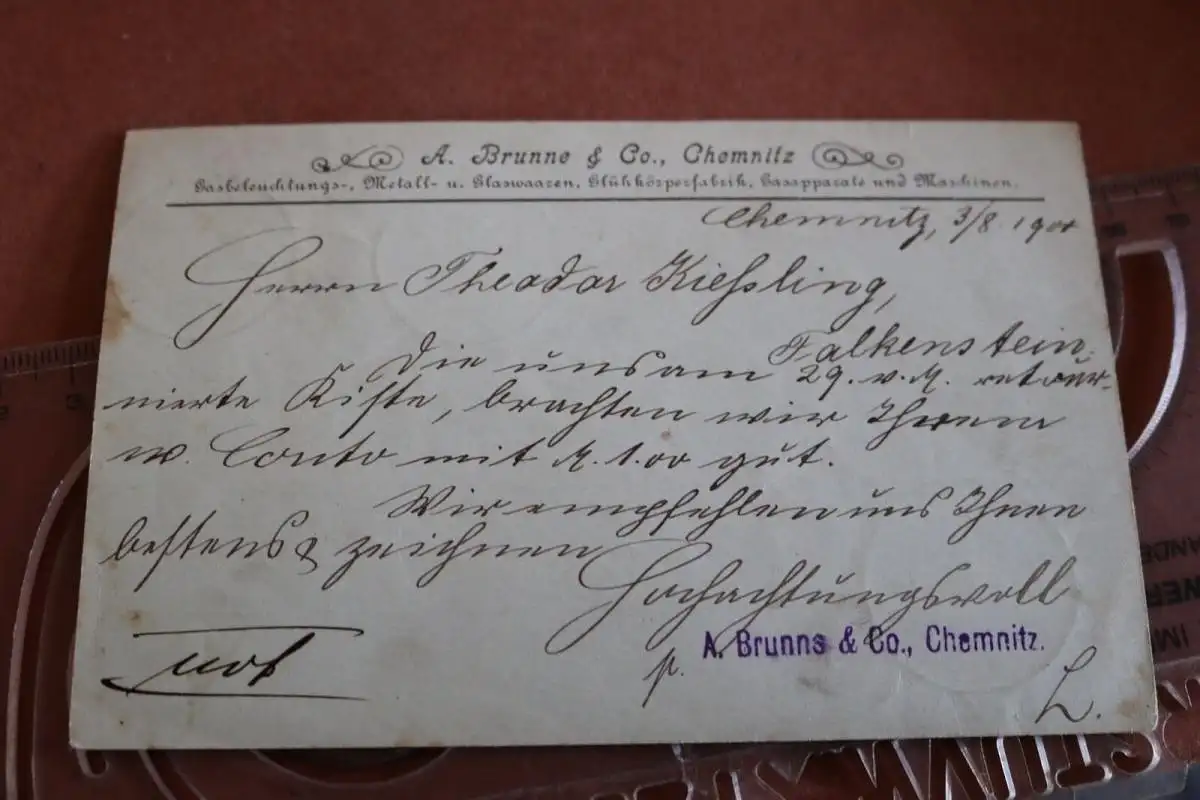 A. Brunne & Co., Chemnitz
Gasbeleuchtungs-, Metall- u. Glaswaaren, Glühkörperfabrik, Gasapparate und Maschinen.
Chemnitz, 3/8 190
Herrn Theodor Kießling,
Falkenstein.
Die uns am 29. v. M. retour-
nierte Kiste, brachten wir Ihrem
w. Conto mit M. 1.00 gut.
Wir empfehlen uns Ihnen
bestens & zeichnen
Hochachtungsvoll
A. Brunne & Co., Chemnitz.
p.
L.